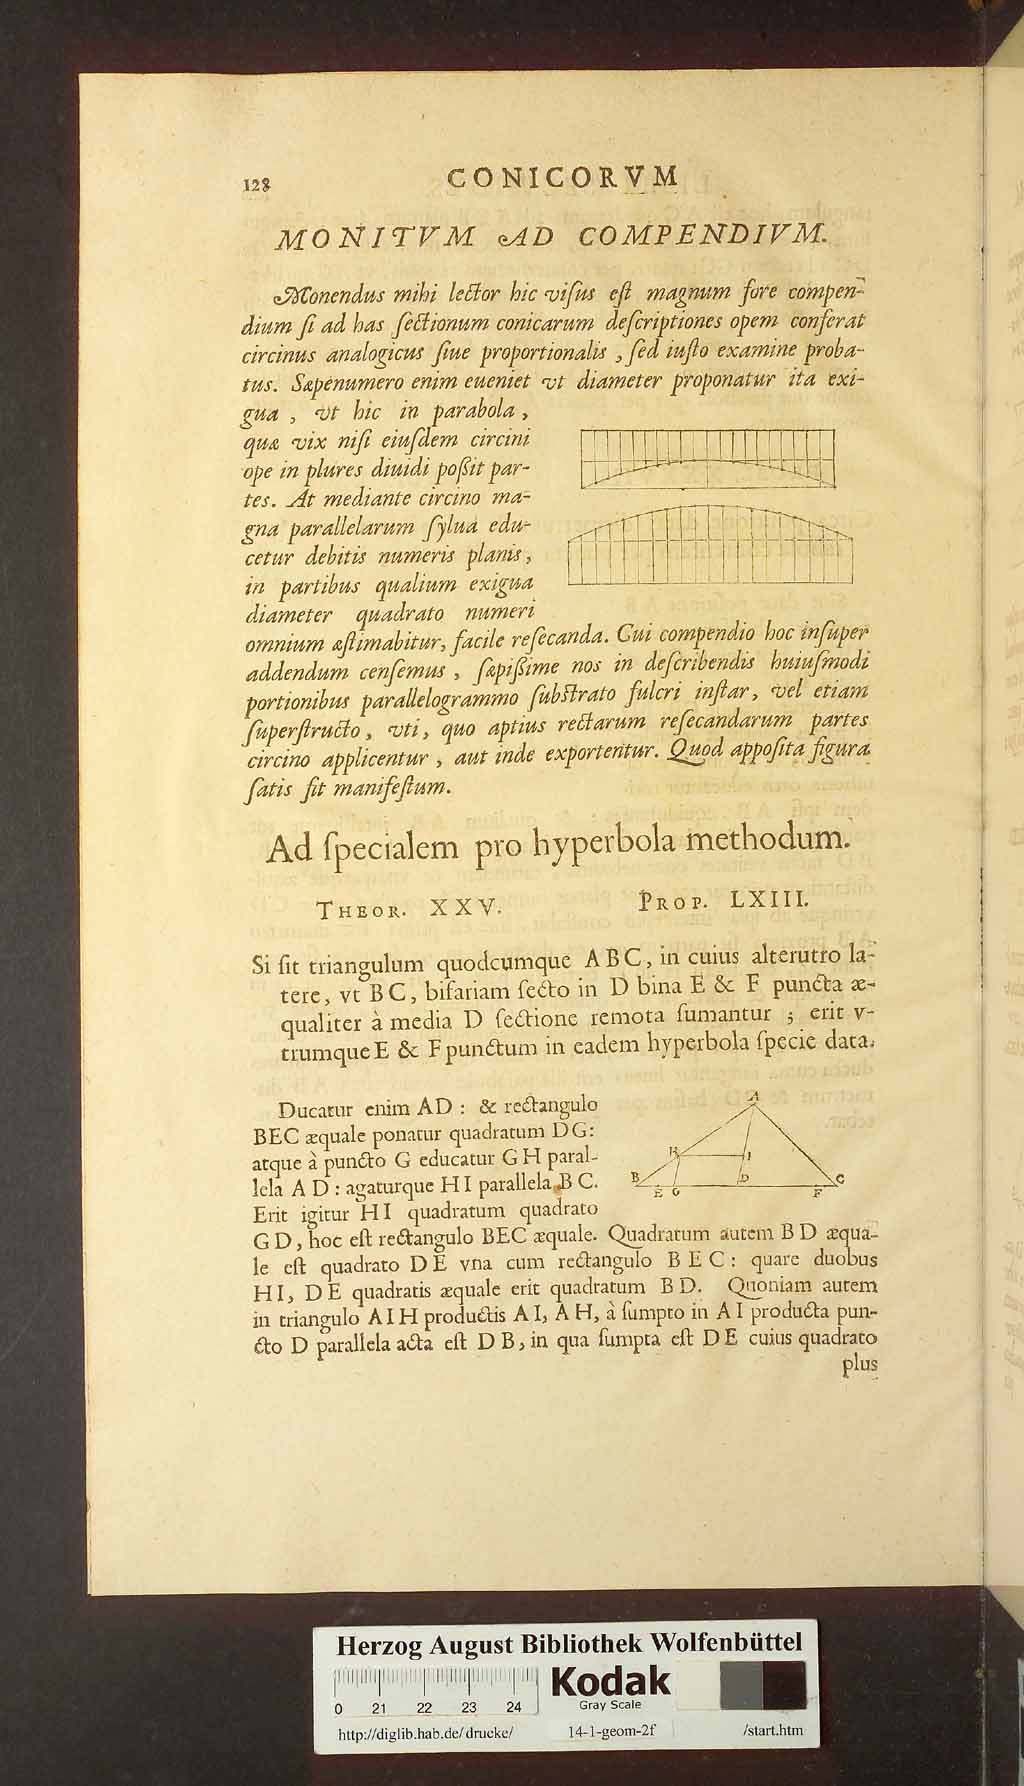 128 CONICORVM
MONITVM AD COMPENDIVM.
Monendus mihi lector hic visus est magnum fore compen-
dium si ad has sectionum conicarum descriptiones opem conferat
circinus analogicus siue proportionalis, sed iusto examine proba-
tus. Sæpenumero enim eueniet vt diameter proponatur ita exi-
gua, vt hic in parabola,
quæ vix nisi eiusdem circini
ope in plures diuidi possit par-
tes. At mediante circino ma-
gna parallelarum sylua edu-
cetur debitis numeris planis,
in partibus qualium exigua
diameter quadrato numeri
omnium æstimabitur, facile resecanda. Cui compendio hoc insuper
addendum censemus, sæpissime nos in describendis huiusmodi
portionibus parallelogrammo substrato fulcri instar, vel etiam
superstructo, vti, quo aptius rectarum resecandarum partes
circino applicentur, aut inde exportentur. Quod apposita figura
satis fit manifestum.
Ad specialem pro hyperbola methodum.
THEOR. XXV. PROP. LXIII.
Si sit triangulum quodcumque ABC, in cuius alterutro la-
tere, vt BC, bifariam secto in D bina E & F puncta æ-
qualiter à media D sectione remota sumantur ; erit v-
trumque E & F punctum in eadem hyperbola specie data.
Ducatur enim AD : & rectangulo
BEC æquale ponatur quadratum DG:
atque à puncto G educatur GH paral-
lela AD : agaturque HI parallela BC.
Erit igitur HI quadratum quadrato
GD, hoc est rectangulo BEC æquale. Quadratum autem BD æqua-
le est quadrato DE vna cum rectangulo BEC : quare duobus
HI, DE quadratis æquale erit quadratum BD. Quoniam autem
in triangulo AIH productis AI, AH, à sumpto in AI producta pun-
cto D parallela acta est DB, in qua sumpta est DE cuius quadrato
plus
A
H I
B D C
E G F
Herzog August Bibliothek Wolfenbüttel
0 21 22 23 24
Kodak
Gray Scale
http://diglib.hab.de/drucke/ 14-1-geom-2f /start.htm